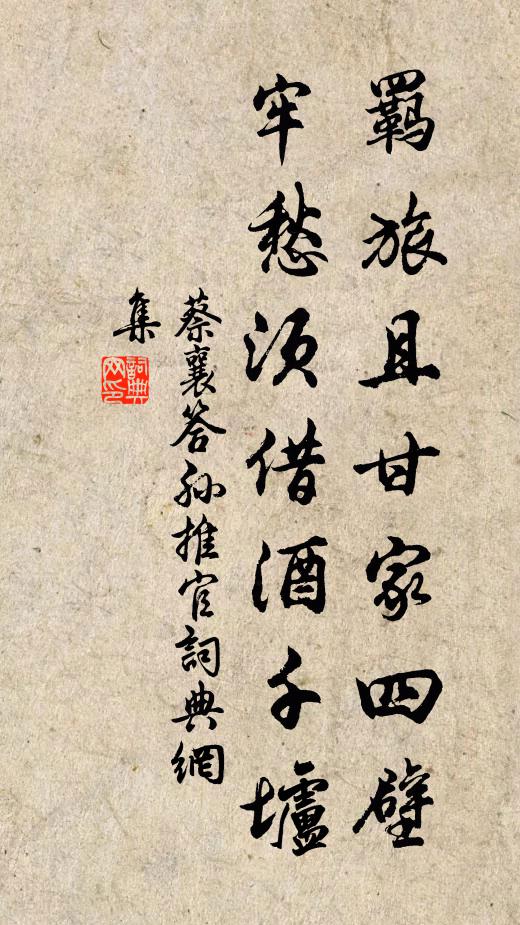 羈旅且甘家四壁
牢愁須借酒千壚
蔡襄答孙推官詞典網
集
詞典
网印